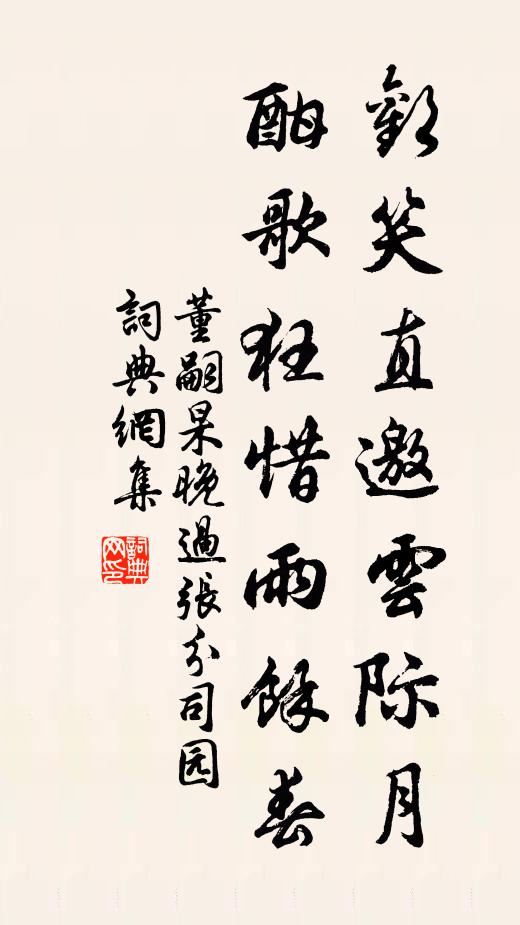 歡笑直邀雲际月
酣歌狂惜雨餘春
董嗣杲晚過張分司园
詞典網集
詞典网印